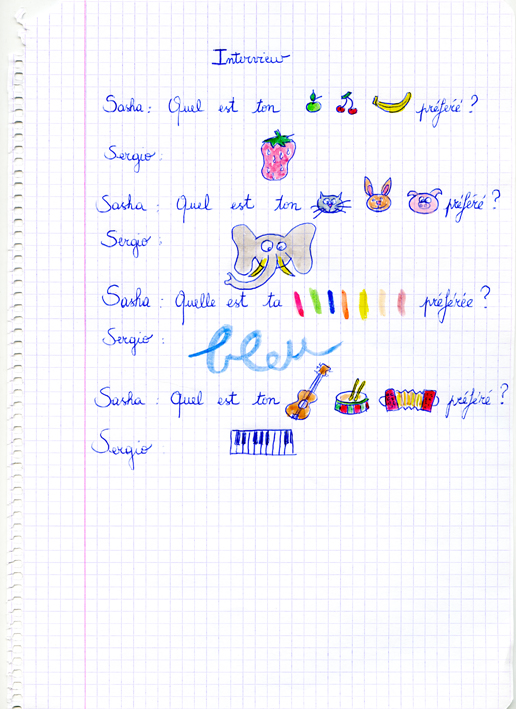 Interview
Sasha : Quel est ton préféré ?
Sergio :
Sasha : Quel est ton préféré ?
Sergio :
Sasha : Quelle est ta préférée ?
Sergio : bleu
Sasha : Quel est ton préféré ?
Sergio